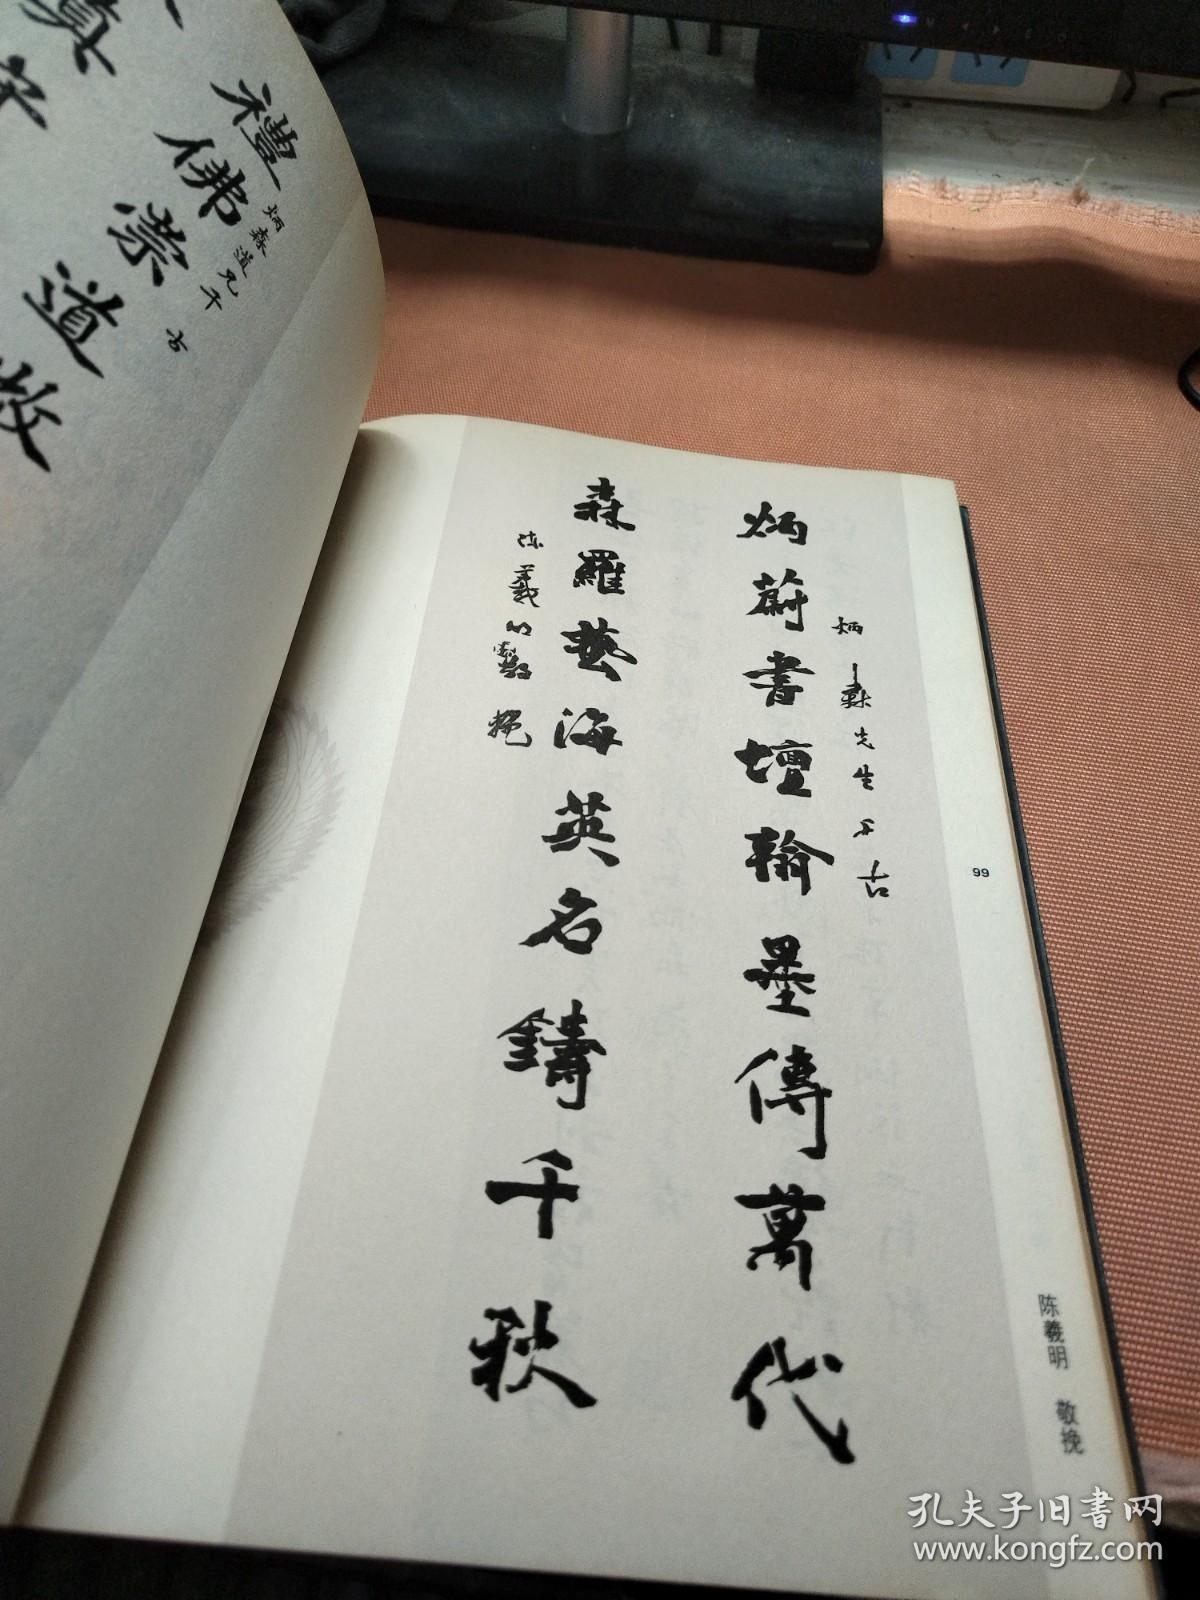 炳森先生千古
炳蔚書壇翰墨傳萬代
森羅藝海英名鑄千秋
陈羲明敬挽
99
陈羲明 敬挽
炳森道兄千古
禮佛崇道故
真字
孔夫子旧书网
www.kongfz.com